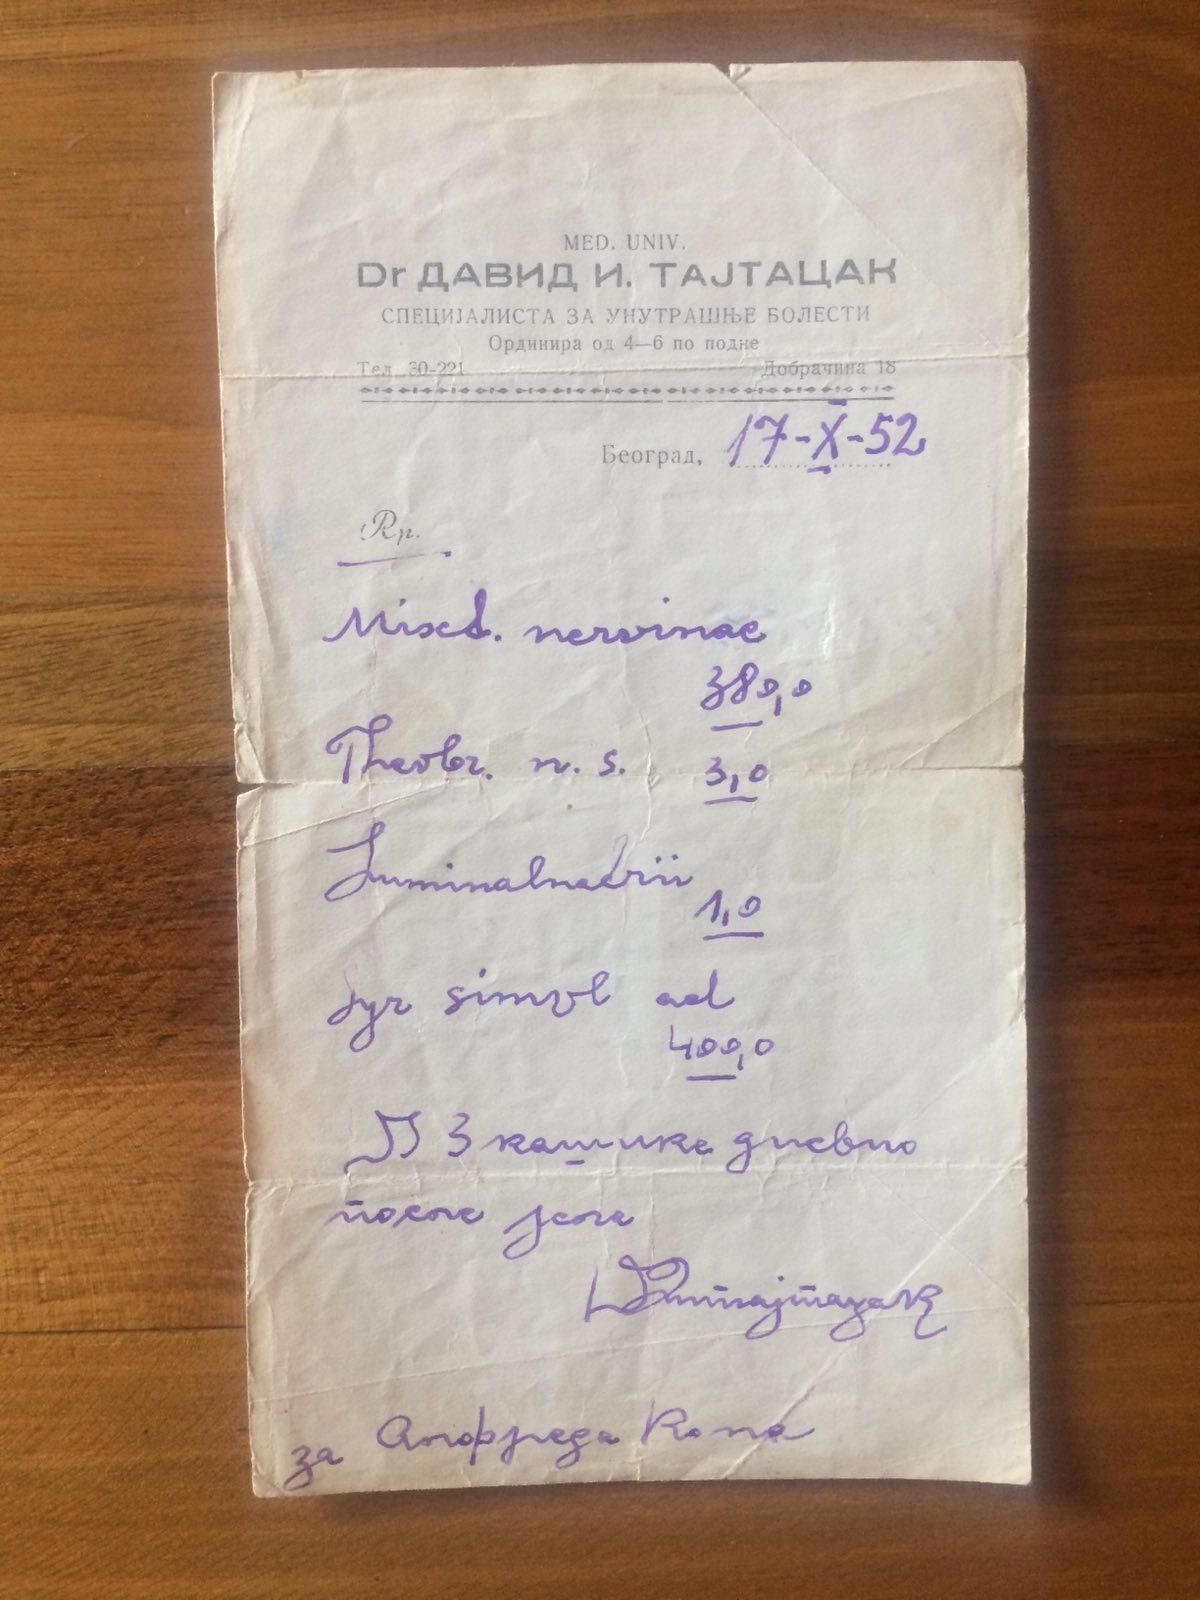 MED. UNIV.
Dr ДАВИД И. ТАЈТАЦАК
СПЕЦИЈАЛИСТА ЗА УНУТРАШЊЕ БОЛЕСТИ
Ординира од 4—6 по подне
Тел. 30-221 Добрачина 18
Београд, 17-X-52
Rp.
Mixt. nervinae
380,0
Theobr. n. s. 3,0
Luminalnatrii
1,0
Syr simpl ad
400,0
S 3 кашике дневно
после јела
за Алфреда Кона